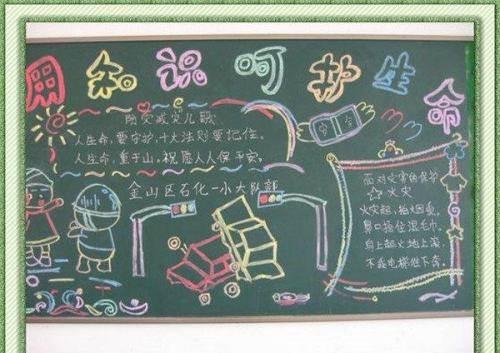 用知识呵护生命
防灾减灾儿歌
人生命，要守护，十大法则要记住。
人生命，重于山，祝愿人人保平安。
金山区石化一小大队部
面对灾害的保护
火灾
火灾起，
鼻口捂住湿毛巾，
身上起火地上滚，
不乘电梯往下奔。